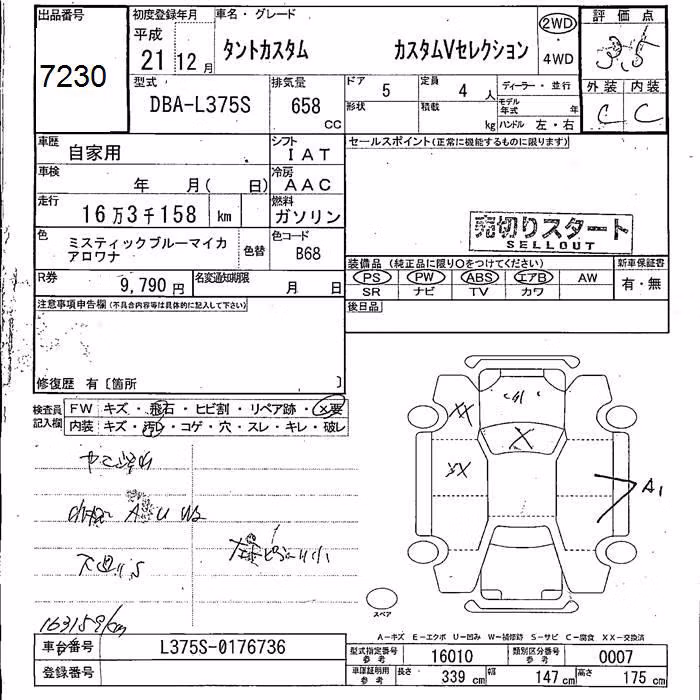 出品番号 初度登録年月 車名・グレード 2WD 評価点
平成
7230 21年 12月 タントカスタム カスタムVセレクション 4WD 3.5
型式 排気量 ドア 5 定員 4人 ディーラー・並行 外装 内装
DBA-L375S 658 形状 積載 モデル年式 年 C C
CC kg ハンドル 左・右
車歴 自家用 シフト IAT セールスポイント(正常に機能するものに限ります)
車検 年 月( 日) 冷房 AAC
走行 16万3千158 km 燃料 ガソリン
売切りスタート
SELLOUT
色 ミスティックブルーマイカ 色替 色コード
アロワナ B68
装備品(純正品に限り○をつけてください) 新車保証書
R券 9,790円 名変通知期限 月 日 PS PW ABS エアB AW 有・無
SR ナビ TV カワ
注意事項申告欄(不具合内容等は具体的に記入して下さい) 後日品
修復歴 有〔箇所 〕
検査員記入欄 FW キズ・飛石・ヒビ割・リペア跡・X要
内装 キズ・汚れ・コゲ・穴・スレ・キレ・破レ
XX
X
XX
A1
163159km
スペア
A―キズ E―エクボ U―凹み W―補修跡 S―サビ C―腐食 XX―交換済
車台番号 L375S-0176736 型式指定番号 参考 16010 類別区分番号 参考 0007
登録番号 車庫証明用 参考 長さ 339cm 幅 147cm 高さ 175cm